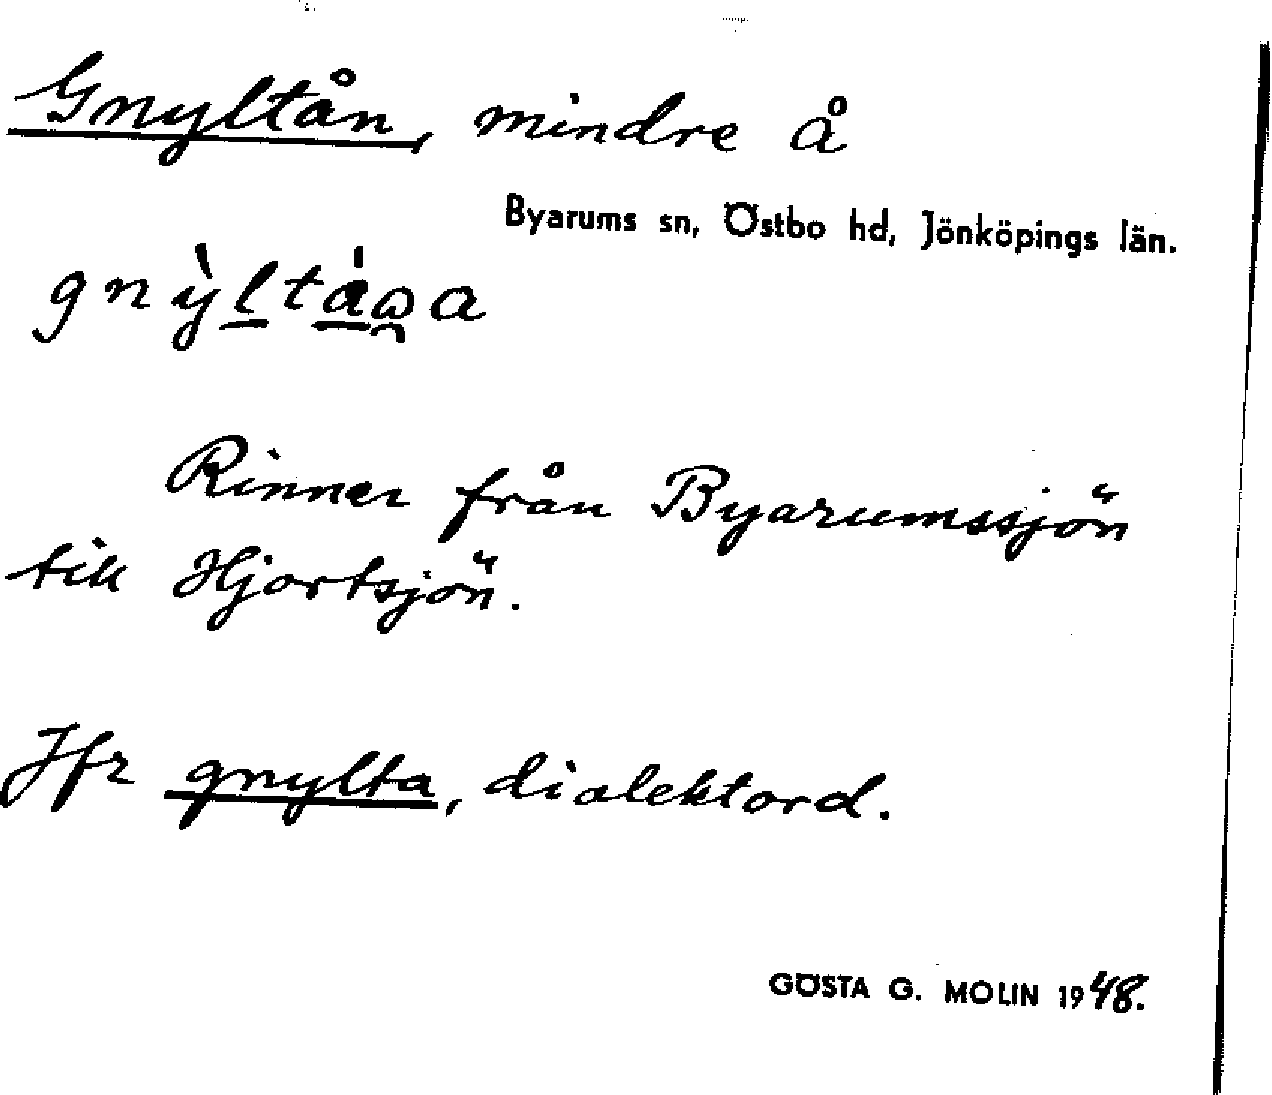 Gnyltån, mindre å
Byarums sn, Östbo hd, Jönköpings län.
gnỳltáωa
Rinner från Byarumssjön
till Hjortsjön.
Jfr gnylta, dialektord.
GÖSTA G. MOLIN 1948.